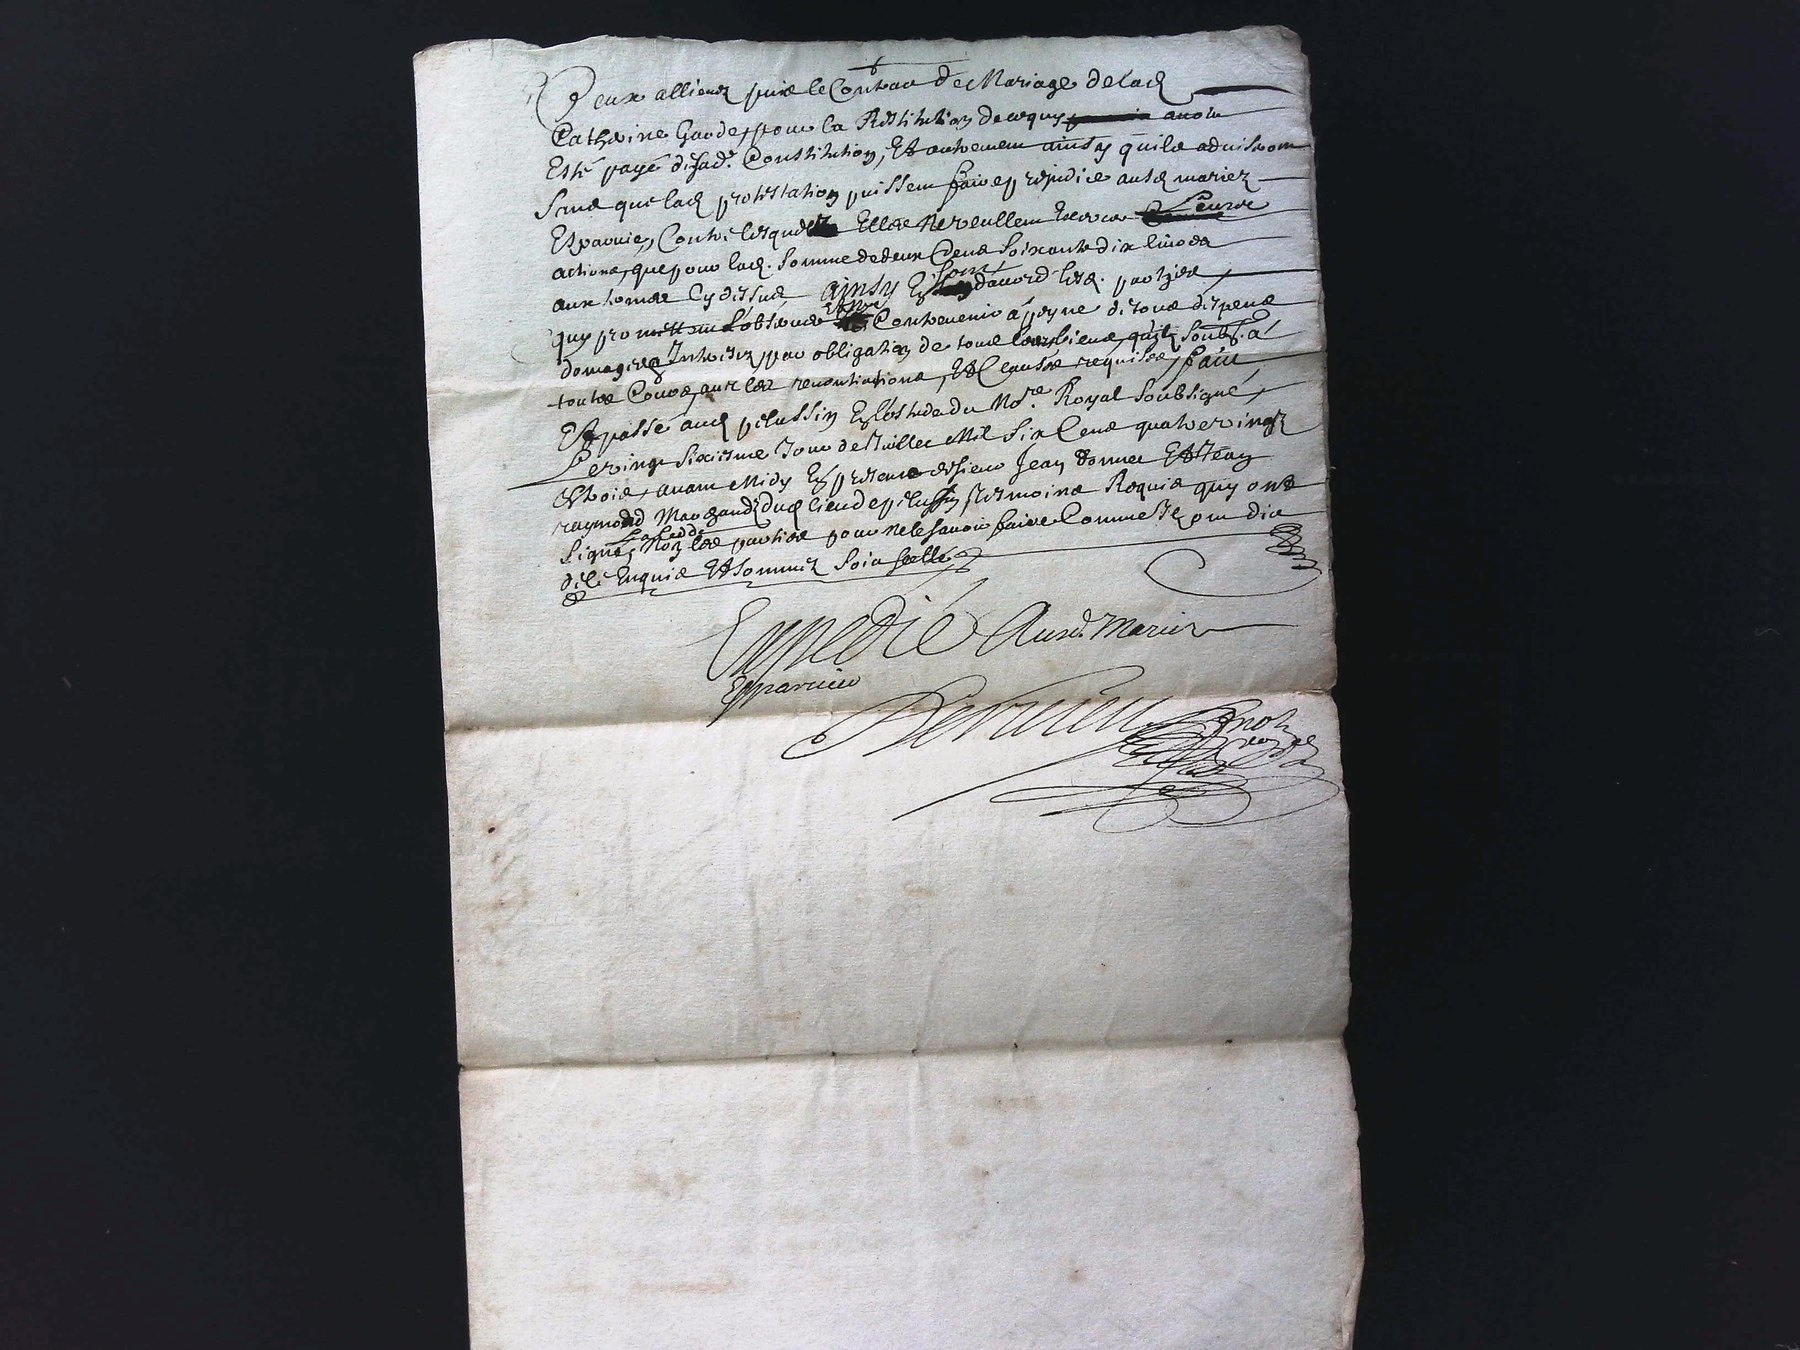 Ceux allieurs puis le Contrat de Mariage de lad
Catherine Garde, pour la Restitution de ce quy avoir
Esté payé de sad. Constitution, Et autrement ainsy quils adviseront
Sans que lad protestation puissent faire prejudice ausd mariez
Esparvier, Contre lesquels Elles ne veullent Exercer Leurs
actions, que pour lad. Somme de deux Cens Soixante dix livres
aux termes Cy dessus Ainsy En sont d'accord lesd. parties
quy promettent L'observer Et Contrevenir à peyne de tous despens
domages Interestz, par obligation de tous leurs biens, quilz soubz. à
toutes Cours, avec les renontiations, Et Clauses requises, faict
Et passé aud pelussin En l'Estude du No.re Royal Soubsigné,
Le vingt Sixiesme Jour de Juillet Mil Six Cens quatre vingtz
Trois, avant Midy En presence de sieur Jean Et Jean
raymond Marchandz dud lieu de pelussin tesmoins Requis quy ont
Signé, Non lesd parties pour ne le Savoir faire Comme Ilz ont dit
de ce Enquis Et Sommez Soit Scellé
Expedié Ausd. Mariez
Esparvier